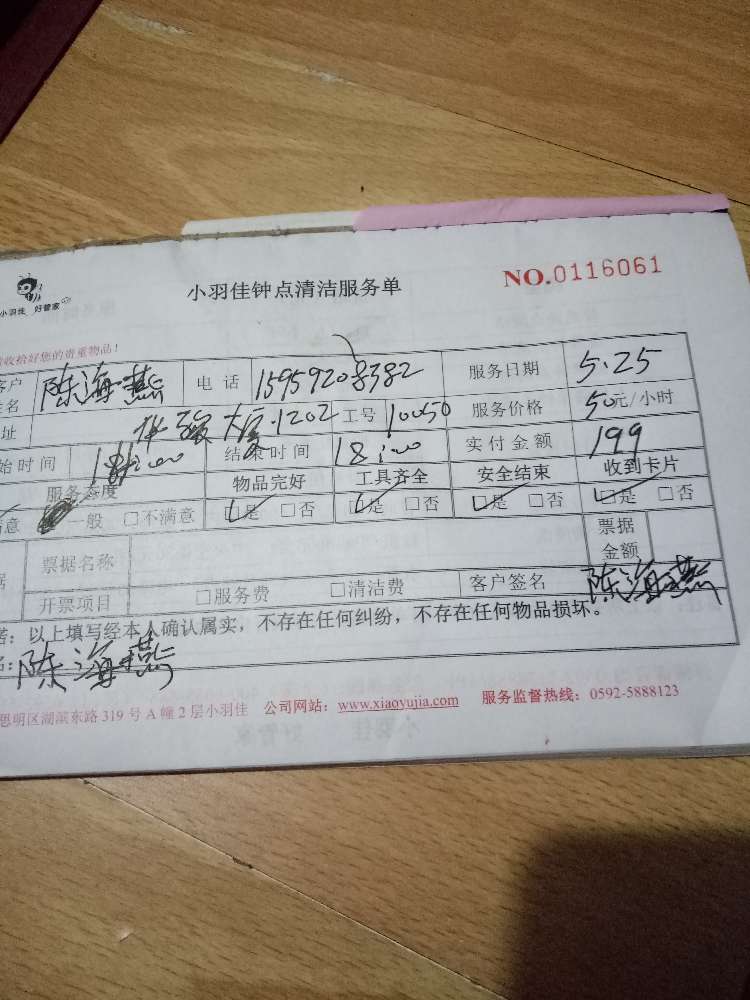 小羽佳 好管家
小羽佳钟点清洁服务单
NO.0116061
收拾好您的贵重物品!
客户姓名 陈海燕 电 话 15959208382 服务日期 5.25
址 大厦.1202 工号 10050 服务价格 50元/小时
始时间 结束时间 18:00 实付金额 199
服务态度 物品完好 工具齐全 安全结束 收到卡片
满意 一般 □不满意 □是 □否 □是 □否 □是 □否 □是 □否
票据名称 票据金额
开票项目 □服务费 □清洁费 客户签名 陈海燕
:以上填写经本人确认属实,不存在任何纠纷,不存在任何物品损坏。
:陈海燕
思明区湖滨东路319号A幢2层小羽佳 公司网站:www.xiaoyujia.com 服务监督热线:0592-5888123